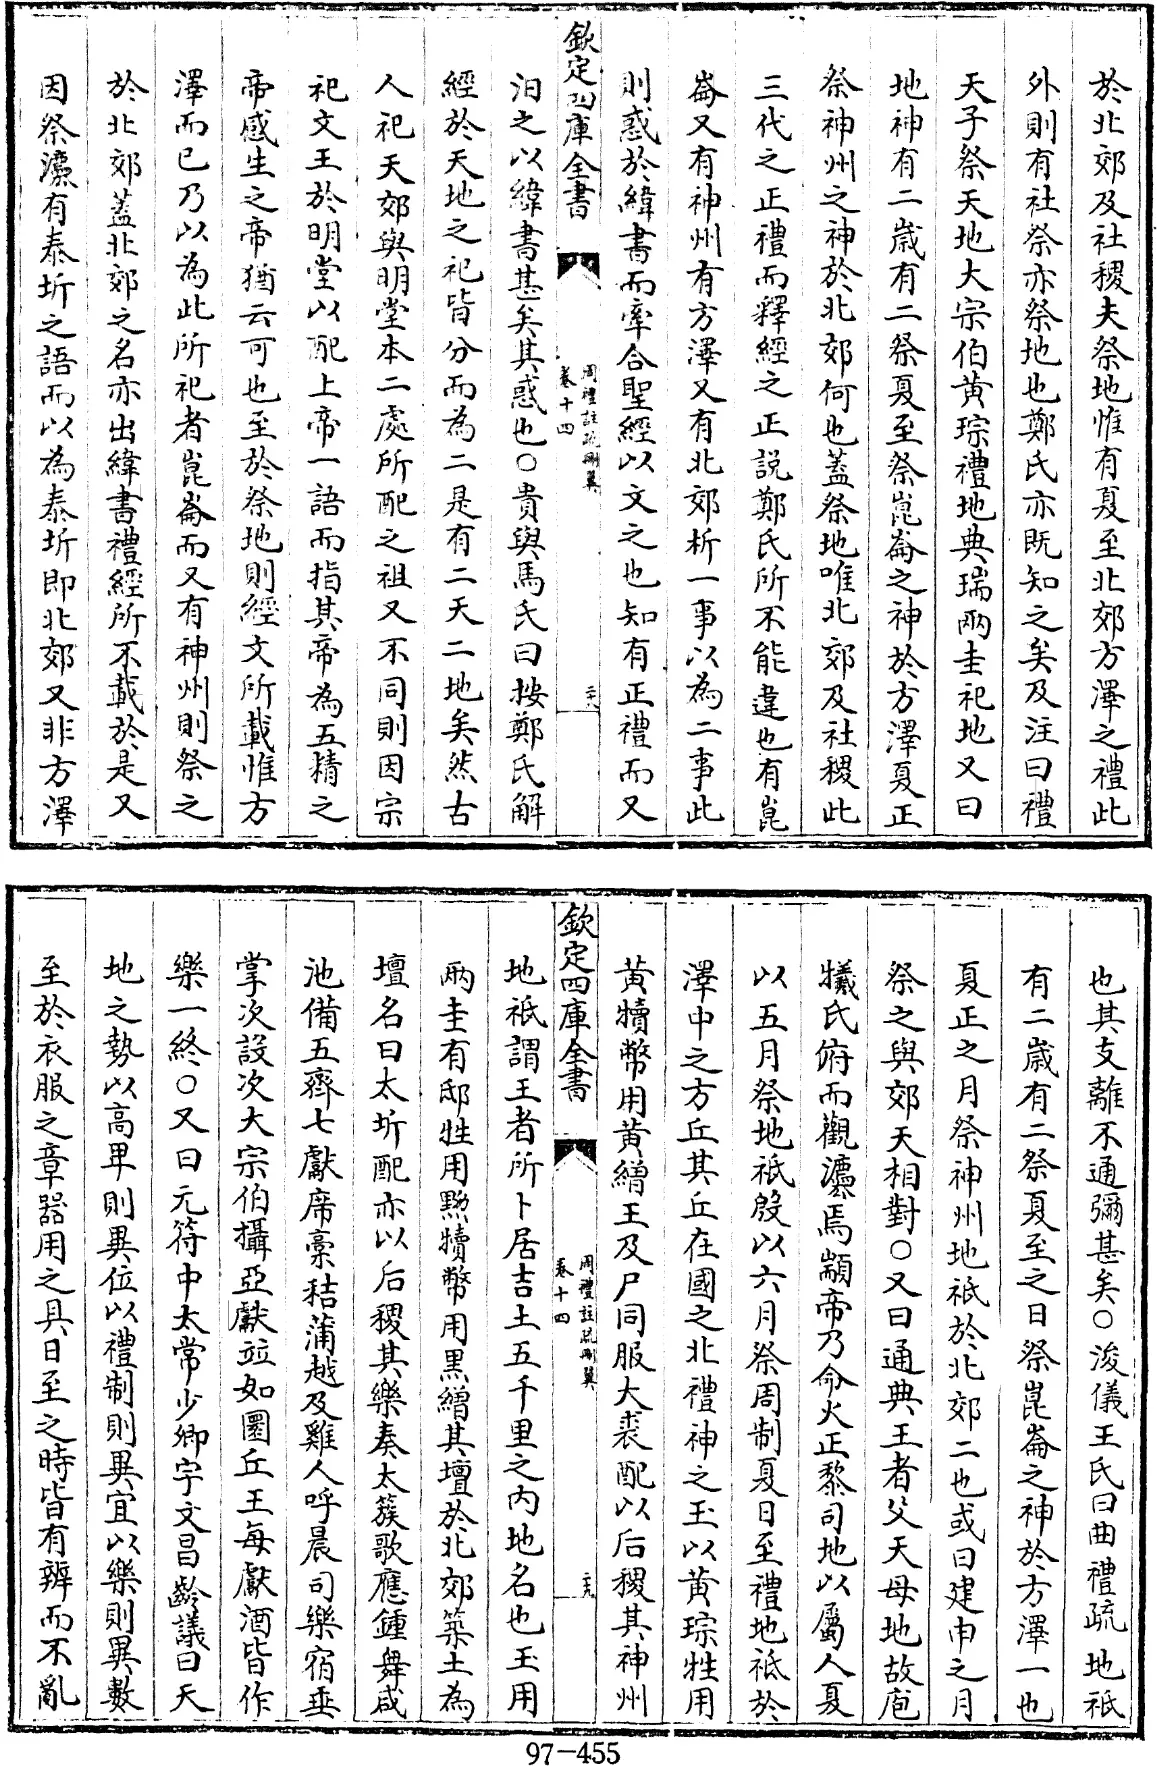 於北郊及社稷夫祭地惟有夏至北郊方澤之禮此
外則有社祭亦祭地也鄭氏亦既知之矣及注曰禮
天子祭天地大宗伯黄琮禮地典瑞兩圭祀地又曰
地神有二歲有二祭夏至祭崑崙之神於方澤夏正
祭神州之神於北郊何也蓋祭地唯北郊及社稷此
三代之正禮而釋經之正説鄭氏所不能違也有崑
崙又有神州有方澤又有北郊析一事以為二事此
則惑於緯書而牽合聖經以文之也知有正禮而又
欽定四庫全書
周禮註疏刪翼
卷十四
二十八
汩之以緯書甚矣其惑也○貴與馬氏曰按鄭氏解
經於天地之祀皆分而為二是有二天二地矣然古
人祀天郊與明堂本二處所配之祖又不同則因宗
祀文王於明堂以配上帝一語而指其帝為五精之
帝感生之帝猶云可也至於祭地則經文所載惟方
澤而已乃以為此所祀者崑崙而又有神州則祭之
於北郊蓋北郊之名亦出緯書禮經所不載於是又
因祭灋有泰圻之語而以為泰圻即北郊又非方澤
也其支離不通彌甚矣○浚儀王氏曰曲禮疏地祇
有二歲有二祭夏至之日祭崑崙之神於方澤一也
夏正之月祭神州地祇於北郊二也或曰建申之月
祭之與郊天相對○又曰通典王者父天母地故庖
犧氏俯而觀灋焉顓帝乃命火正黎司地以屬人夏
以五月祭地祇殷以六月祭周制夏日至禮地祇於
澤中之方丘其丘在國之北禮神之玉以黄琮牲用
黄犢幣用黄繒王及尸同服大裘配以后稷其神州
欽定四庫全書
周禮註疏刪翼
卷十四
二十九
地祇謂王者所卜居吉土五千里之内地名也玉用
兩圭有邸牲用黝犢幣用黑繒其壇於北郊築土為
壇名曰太圻配亦以后稷其樂奏太簇歌應鍾舞咸
池備五齊七獻席槀秸蒲越及雞人呼晨司樂宿垂
掌次設次大宗伯攝亞獻竝如圜丘王每獻酒皆作
樂一終○又曰元符中太常少卿宇文昌齡議曰天
地之勢以高卑則異位以禮制則異宜以樂則異數
至於衣服之章器用之具日至之時皆有辨而不亂
97-455